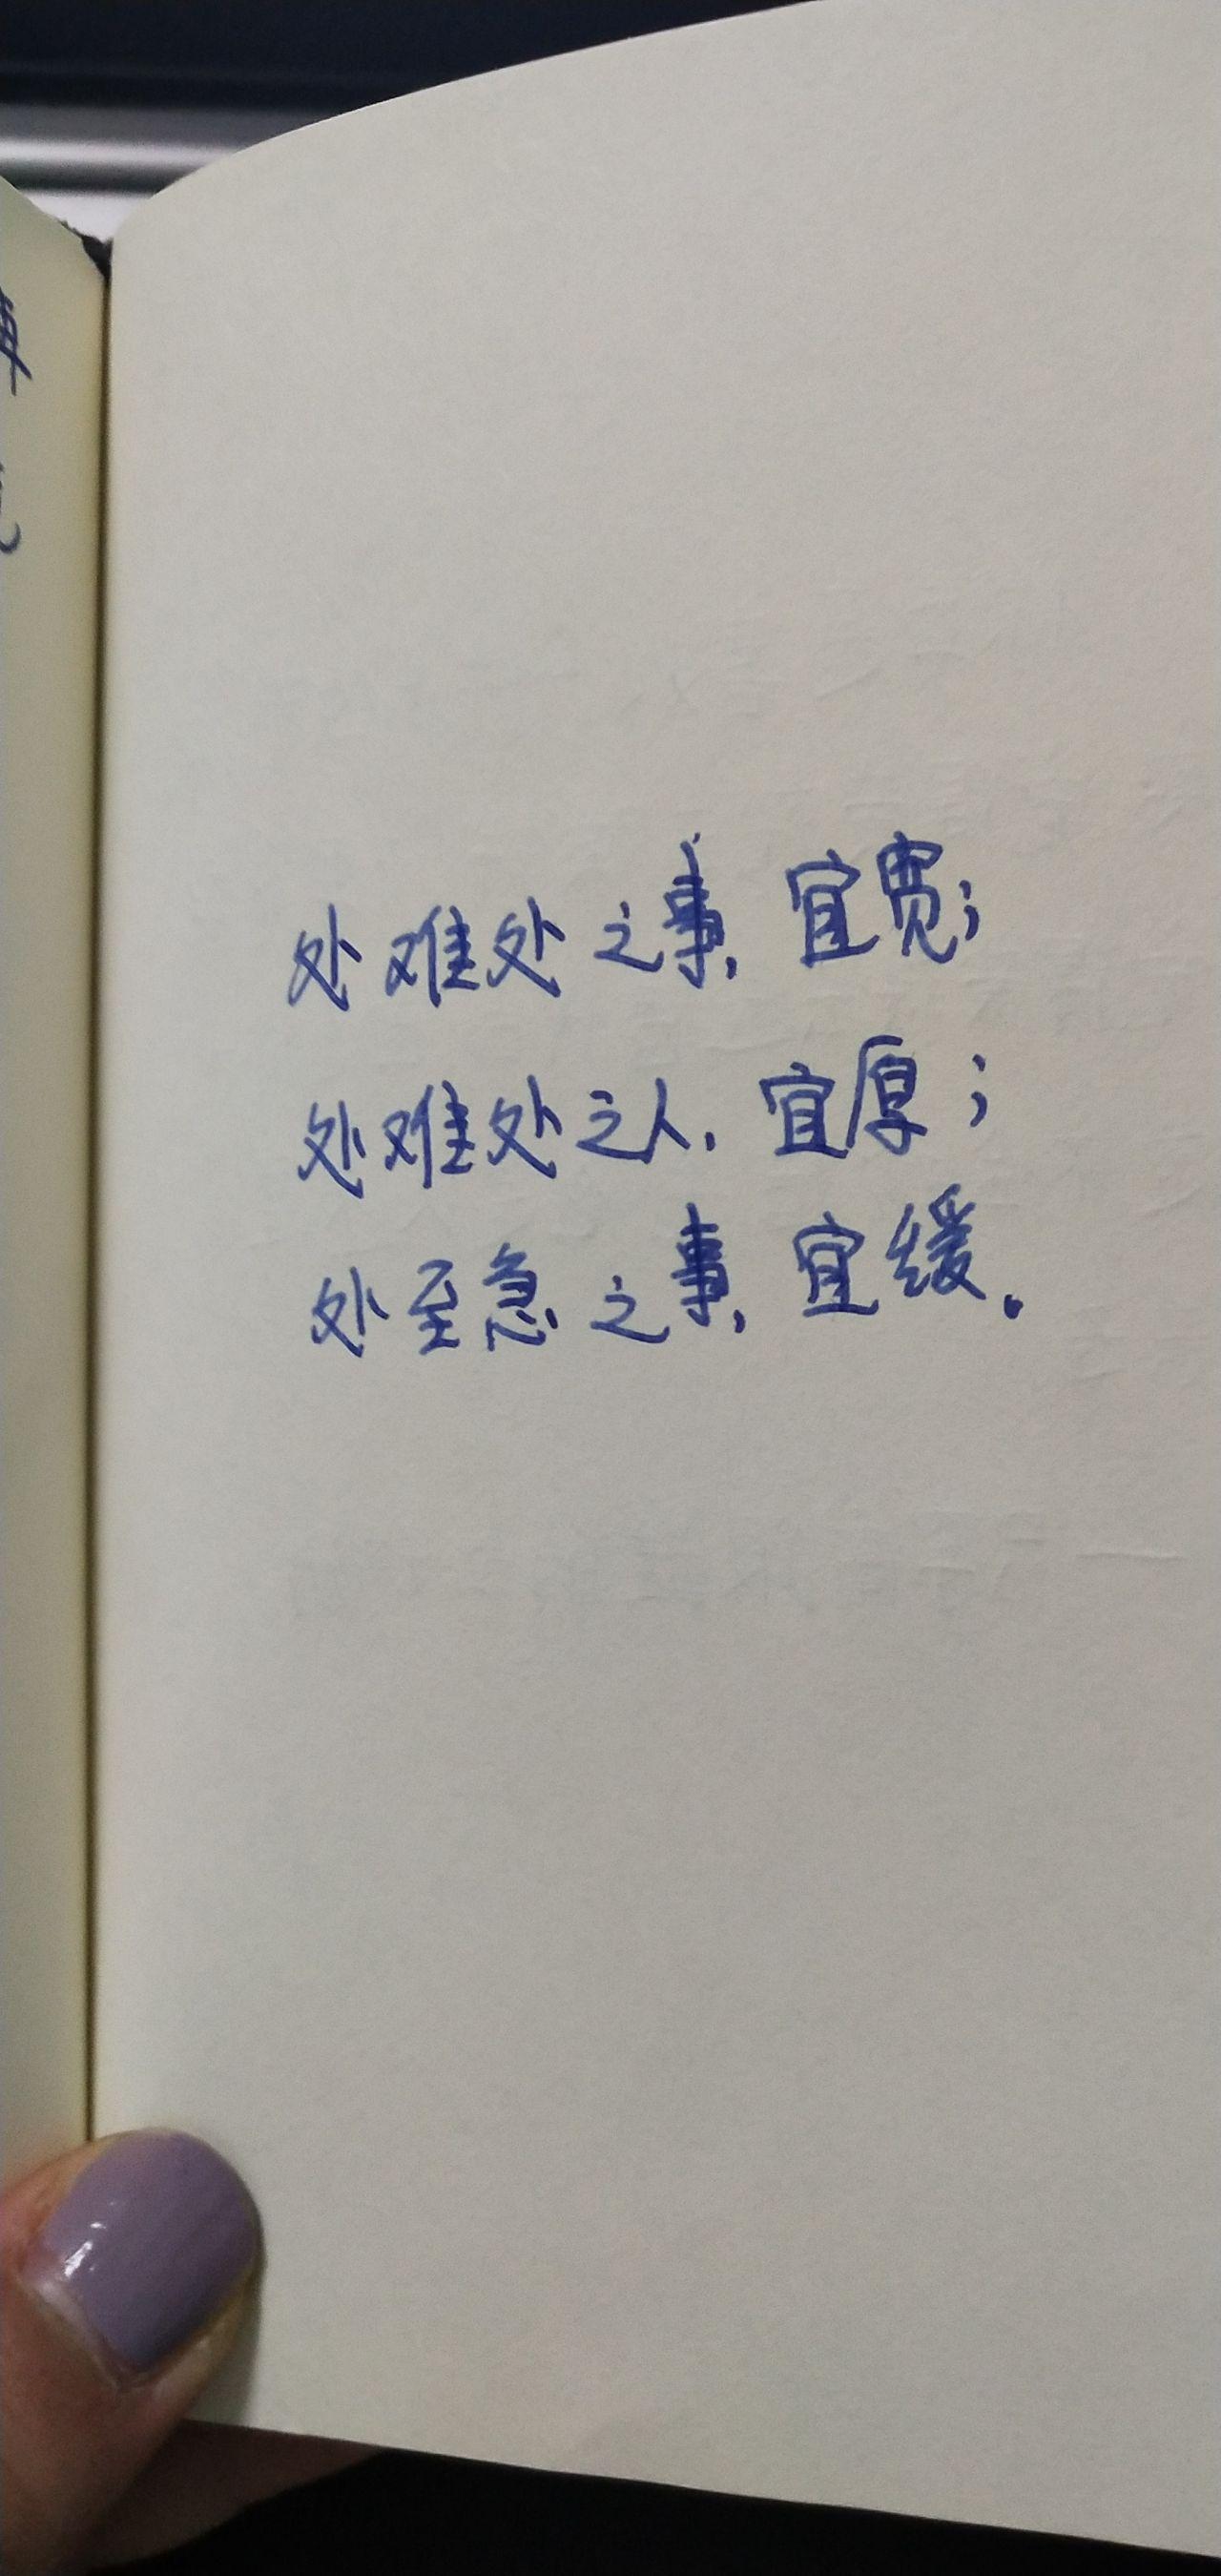 处难处之事，宜宽；
处难处之人，宜厚；
处至急之事，宜缓。